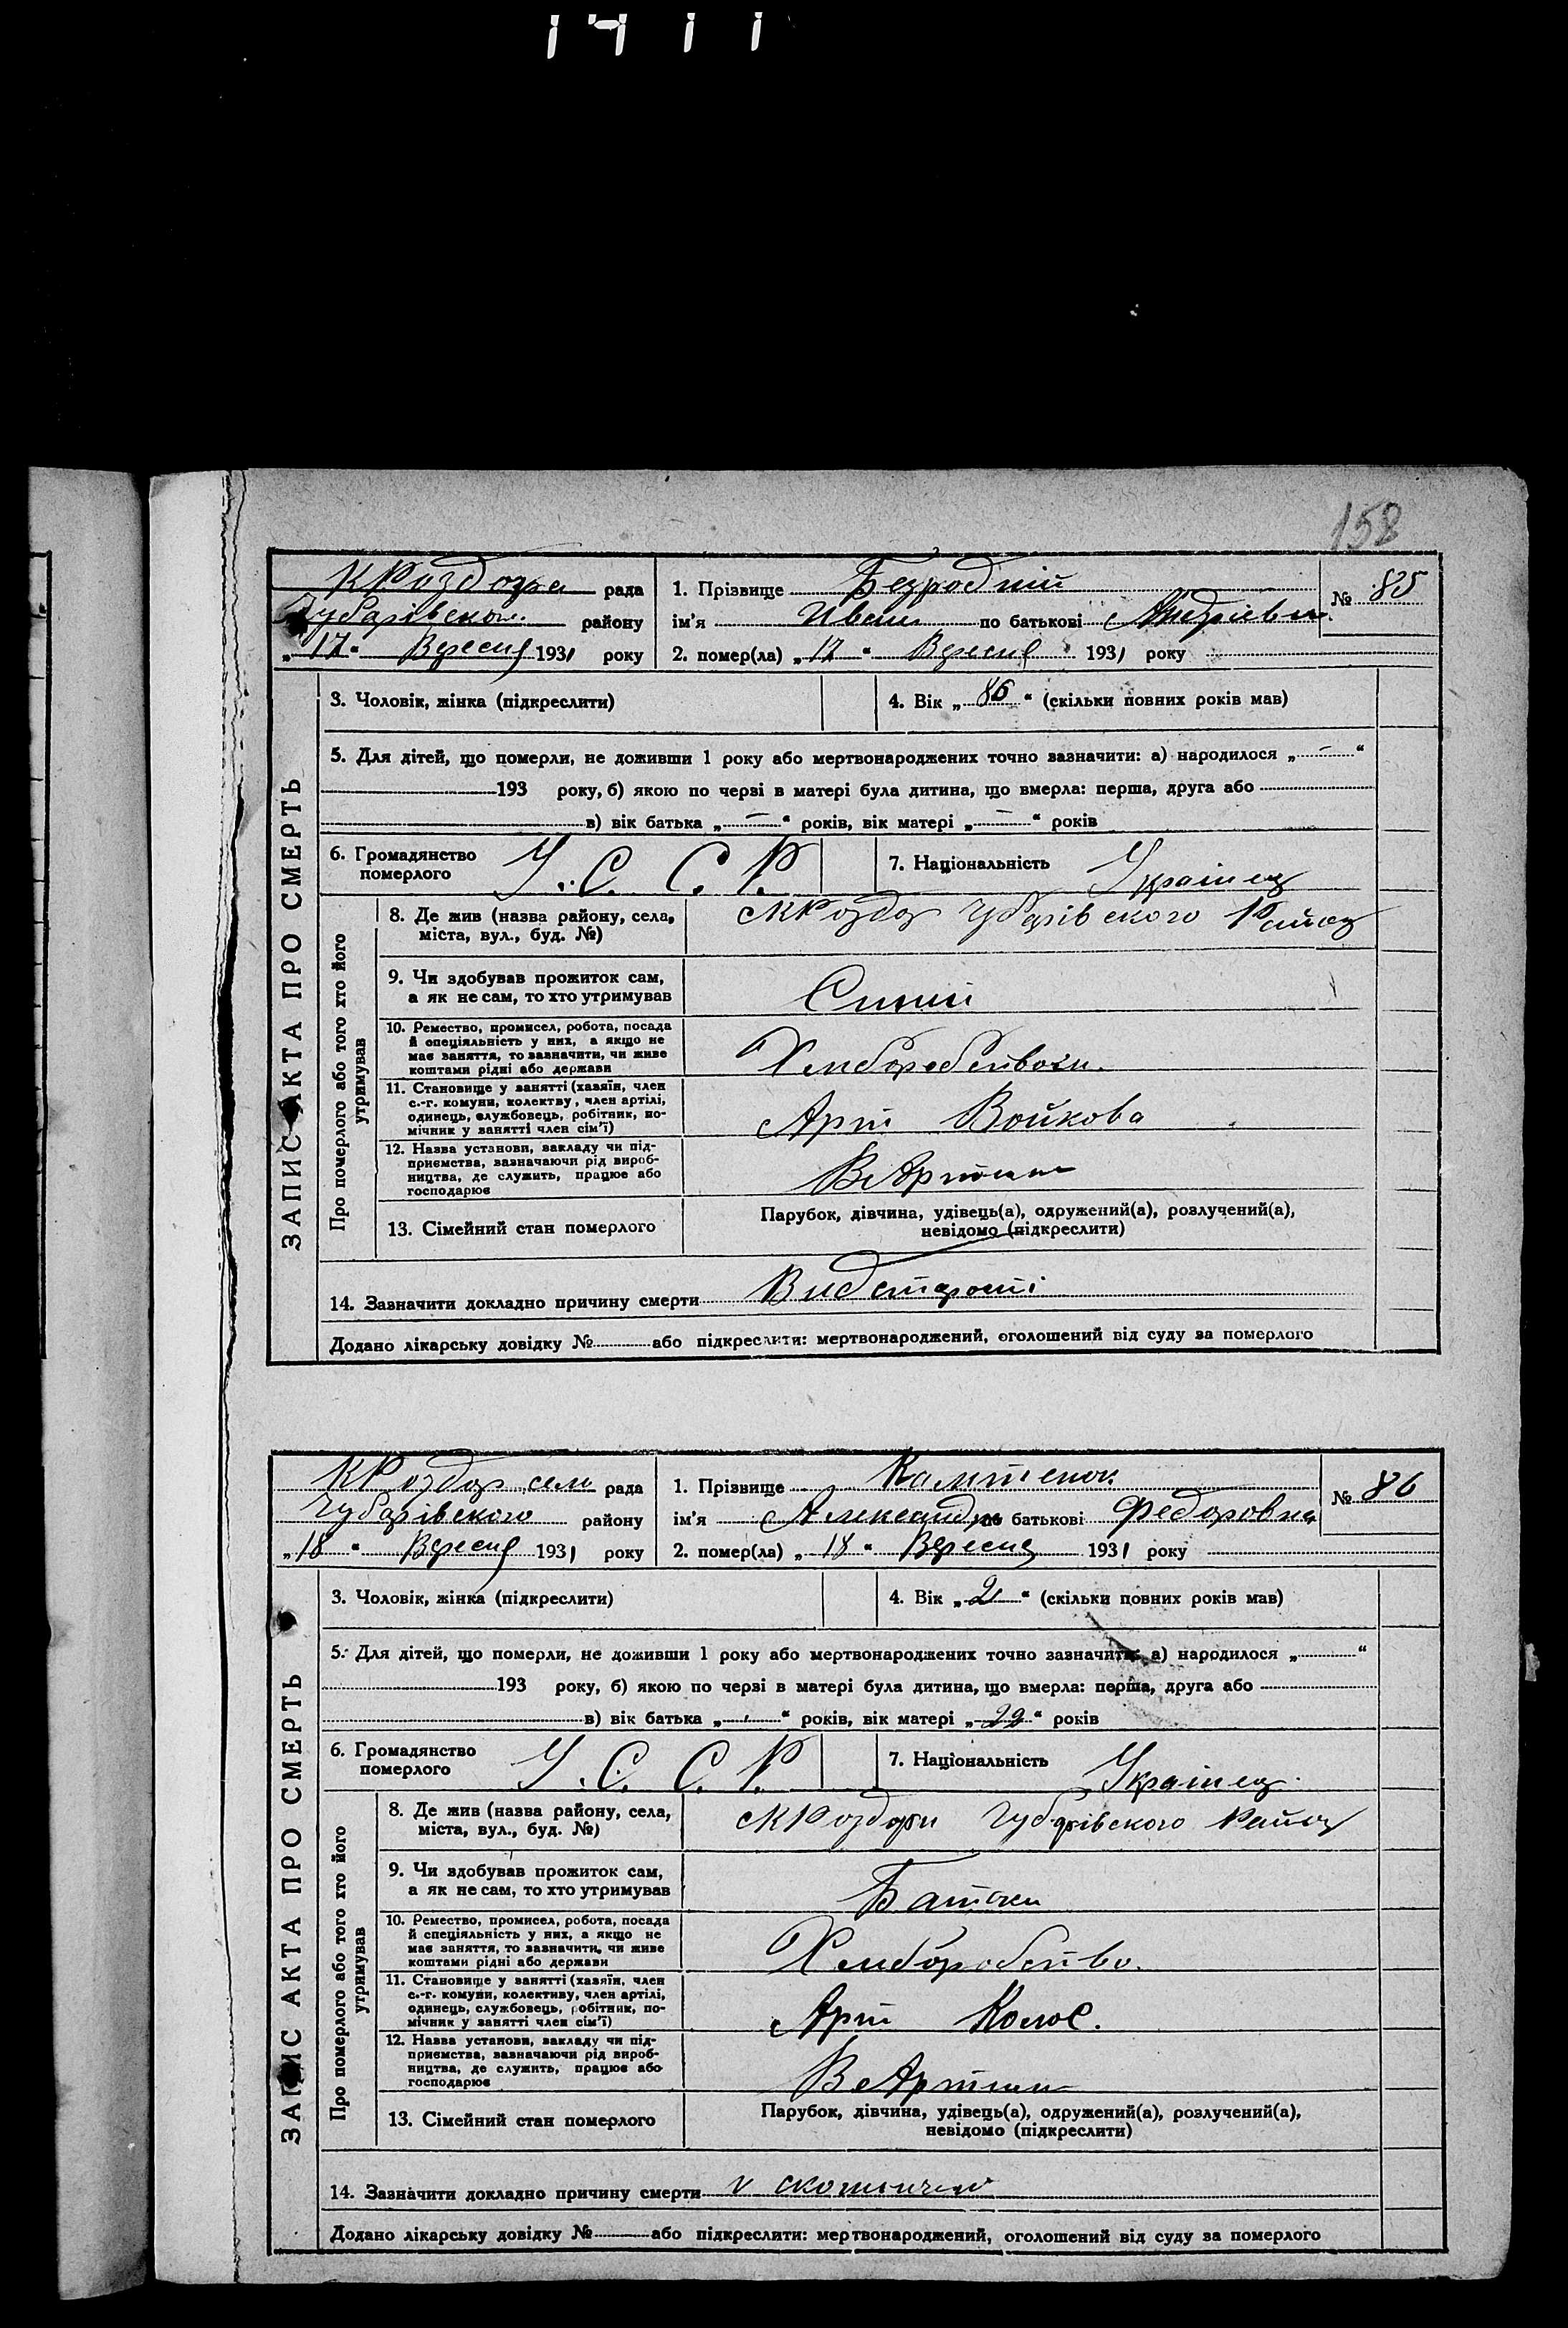 158
КРоздора рада
Чубарівском району
„17“ Вересня 1931 року
1. Прізвище Безродній
ім'я Иван по батькові Андріеви
2. помер(ла) „17“ Вересня 1931 року
№ 85
ЗАПИС АКТА ПРО СМЕРТЬ
3. Чоловік, жінка (підкреслити)
4. Вік „86“ (скільки повних років мав)
5. Для дітей, що померли, не доживши 1 року або мертвонароджених точно зазначити: а) народилося „—“
193 року, б) якою по черзі в матері була дитина, що вмерла: перша, друга або
в) вік батька „—“ років, вік матері „—“ років
6. Громадянство
померлого
У. С. С. Р.
7. Національність Украінец
Про померлого або того хто його
утримував
8. Де жив (назва району, села,
міста, вул., буд. №)
сКРоздор Чубарівского Району
9. Чи здобував прожиток сам,
а як не сам, то хто утримував
10. Ремество, промисел, робота, посада
й спеціяльність у них, а якщо не
має заняття, то зазначити, чи живе
коштами рідні або держави
11. Становище у занятті (хазяїн, член
с.-г. комуни, колектву, член артілі,
одинець, службовець, робітник, по-
мічник у занятті член сім'ї)
Арт Войкова
12. Назва установи, закладу чи під-
приємства, зазначаючи рід вироб-
ництва, де служить, працює або
господарює
В Артили
13. Сімейний стан померлого
Парубок, дівчина, удівець(а), одружений(а), розлучений(а),
невідомо (підкреслити)
14. Зазначити докладно причину смерти Вид старости
Додано лікарську довідку № або підкреслити: мертвонароджений, оголошений від суду за померлого
КРоздор сел рада
Чубарівского району
„18“ Вересня 1931 року
1. Прізвище
ім'я Александра по батькові Федоровна
2. помер(ла) „18“ Вересня 1931 року
№ 86
ЗАПИС АКТА ПРО СМЕРТЬ
3. Чоловік, жінка (підкреслити)
4. Вік „2“ (скільки повних років мав)
5. Для дітей, що померли, не доживши 1 року або мертвонароджених точно зазначити: а) народилося „“
193 року, б) якою по черзі в матері була дитина, що вмерла: перша, друга або
в) вік батька „“ років, вік матері „22“ років
6. Громадянство
померлого
У. С. С. Р.
7. Національність Украінец
Про померлого або того хто його
утримував
8. Де жив (назва району, села,
міста, вул., буд. №)
сКРоздори Чубарівского Району
9. Чи здобував прожиток сам,
а як не сам, то хто утримував
Батьки
10. Ремество, промисел, робота, посада
й спеціяльність у них, а якщо не
має заняття, то зазначити, чи живе
коштами рідні або держави
Хлиборобство.
11. Становище у занятті (хазяїн, член
с.-г. комуни, колективу, член артілі,
одинець, службовець, робітник, по-
мічник у занятті член сім'ї)
Арт Колос.
12. Назва установи, закладу чи під-
приємства, зазначаючи рід вироб-
ництва, де служить, працює або
господарює
В Артили
13. Сімейний стан померлого
Парубок, дівчина, удівець(а), одружений(а), розлучений(а),
невідомо (підкреслити)
14. Зазначити докладно причину смерти
Додано лікарську довідку № або підкреслити: мертвонароджений, оголошений від суду за померлого